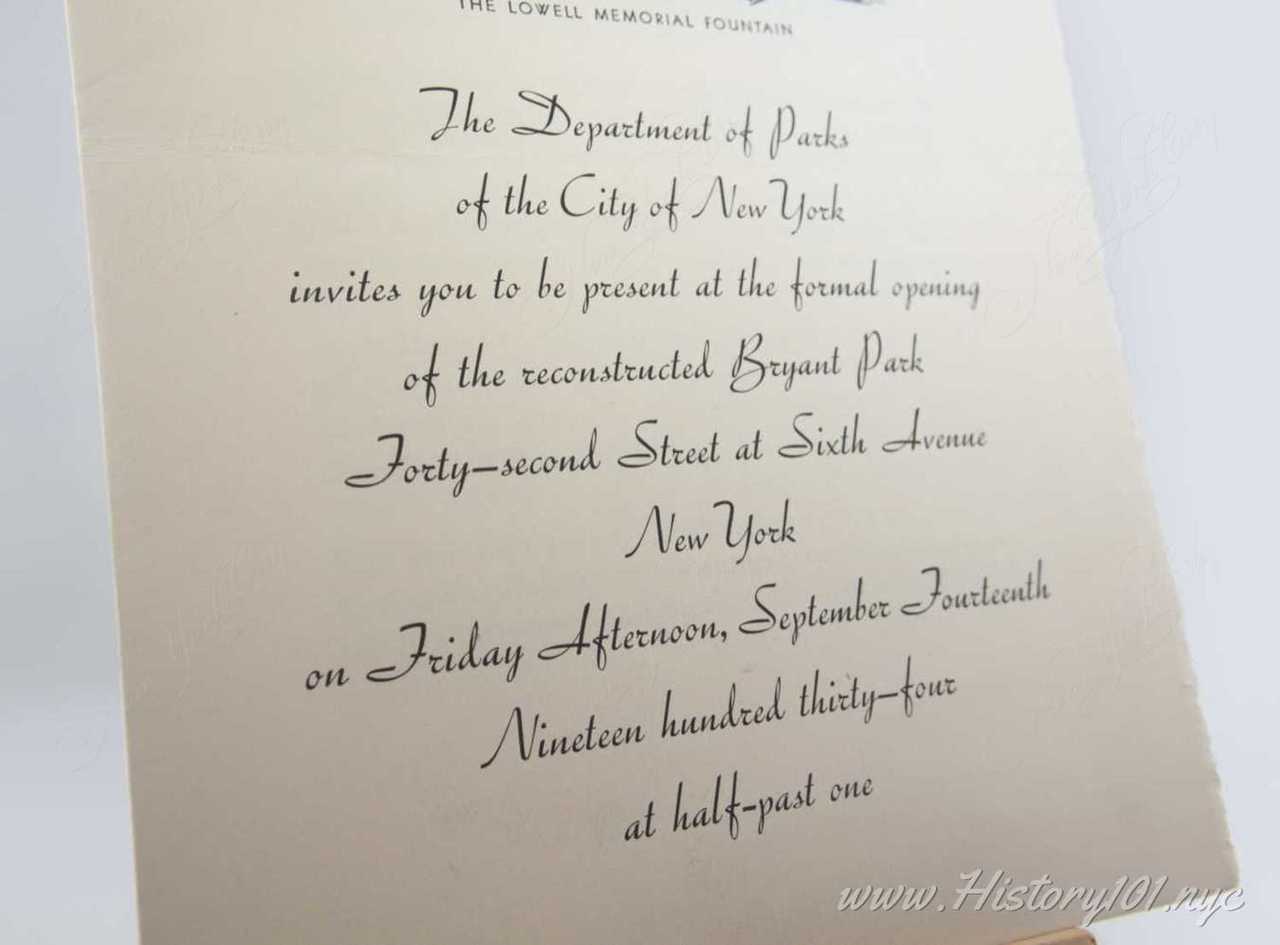 THE LOWELL MEMORIAL FOUNTAIN
The Department of Parks
of the City of New York
invites you to be present at the formal opening
of the reconstructed Bryant Park
Forty-second Street at Sixth Avenue
New York
on Friday Afternoon, September Fourteenth
Nineteen hundred thirty-four
at half-past one
www.History101.nyc